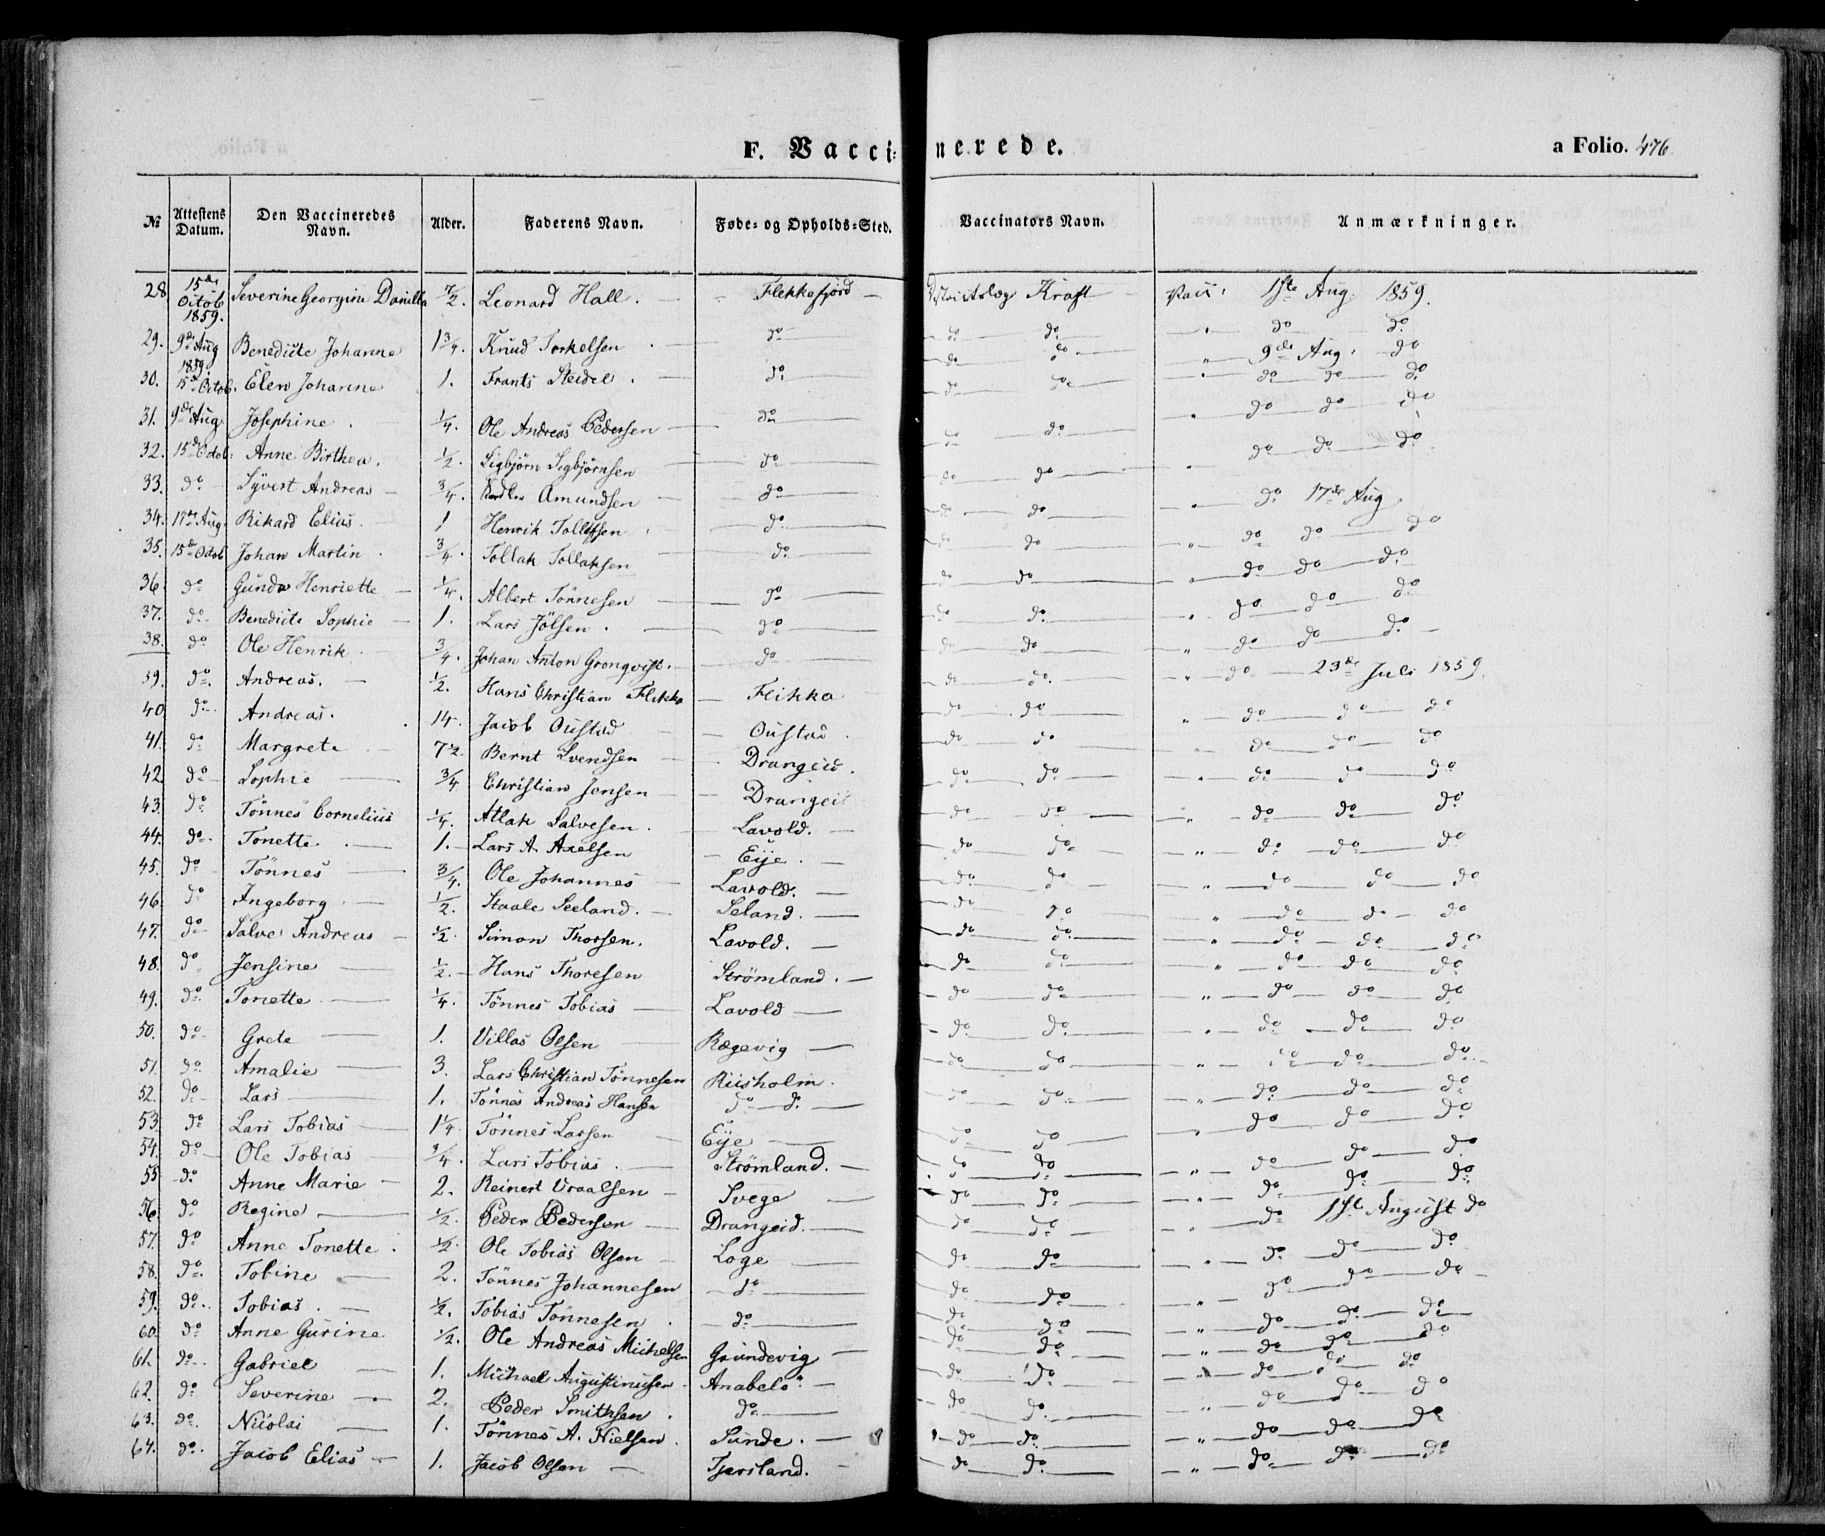 F. Vaccinerede. a Folio. 476.
№ Attestens Datum. Den Vaccineredes Navn. Alder. Faderens Navn. Føde- og Opholds-Sted. Vaccinators Navn. Anmærkninger.
28 15de Octob 1859. Severine Georgine Danilla ½. Leonard Hall. Flekkefjord Kraft Vacc. 1ste Aug. 1859.
29. 9de Aug 1859. Benedicte Johanne 1¾. Knud Torkelsen do do do " do do
30. 15de Octob. Elen Johanne 1. Frants Steidel. do do do " 9de Aug. do
31. 9de Aug. Josephine. ¼. Ole Andreas Pedersen do do do " do do do
32. 15de Octob. Anne Birthea. ½. Sigbjörn Sigbjörnsen do do do " do do do
33. do Syvert Andreas ¾. Amundsen do do do " do do do
34. 17de Aug. Rikard Elias. 1 Henrik Tollefsen do do do " do 17de Aug.
35. 15de Octob Johan Martin. ¾. Tollak Tollaksen do do do " do do do
36. do Gunda Henriette ¼. Albert Tönnesen do do do " do do do
37. do Benedicte Sophie 1. Lars Jölsen. do do do " do do do
38. do Ole Henrik ¾. Johan Anton Gronqvist. do do do " do do do
39. do Andreas. ½. Hans Christian Flikka Flikka do do " do 23de Juli 1859.
40. do Andreas. 14. Jacob Oustad Oustad. do do " do do do
41. do Margrete 7½. Bernt Svendsen Drangeid. do do " do do do
42 do Sophie ¾ Christian Jensen Drangeid do do " do do do
43. do Tönnes Cornelius ¼. Atlak Salvesen. Lavold. do do " do do do
44. do Tonette. 1. Lars A. Axelsen Eije. do do " do do do
45. do Tönnes ¾. Ole Johannes Lavold. do do " do do do
46. do Ingeborg. ½. Staale Seeland. Seland. do do " do do do
47. do Salve Andreas ½. Simon Thorsen. Lavold. do do " do do do
48. do Jensine ½. Hans Thoresen Strømland. do do " do do do
49. do Tonette ¼. Tönnes Tobias Lavold do do " do do do
50. do Grete 1. Villas Olsen Rægevig do do " do do do
51. do Amalie 3. Lars Christian Tönnesen Riisholm. do do " do do do
52. do Lars 1. Tönnes Andreas Hansen do do. do do " do do do
53. do Lars Tobias 1¼. Tönnes Larsen Eije do do " do do do
54. do Ole Tobias ¾. Lars Tobias. Strømland. do do " do do do
55 do Anne Marie 2. Reinert Vraalsen Svege do do " do do do
56. do Regine ½. Peder Pedersen Drangeid. do do " do 1ste August do
57. do Anne Tonette. ½. Ole Tobias Olsen Loge do do " do do do
58. do. Tobine 2. Tönnes Johannesen do do do " do do do
59. do. Tobias. ½. Tobias Tönnesen. do do do " do do do
60. do Anne Gurine ½. Ole Andreas Michelsen Grundevig do do " do do do
61. do. Gabriel 1. Michael Augustinusen Anabelö. do do " do do do
62. do Severine 2. Peder Smithsen. do do do. " do do do
63. do. Nicolai 1. Tönnes A. Nielsen. Sunde. do do " do do do
64. do. Jacob Elias 1. Jacob Olsen Tjersland. do do. " do do do